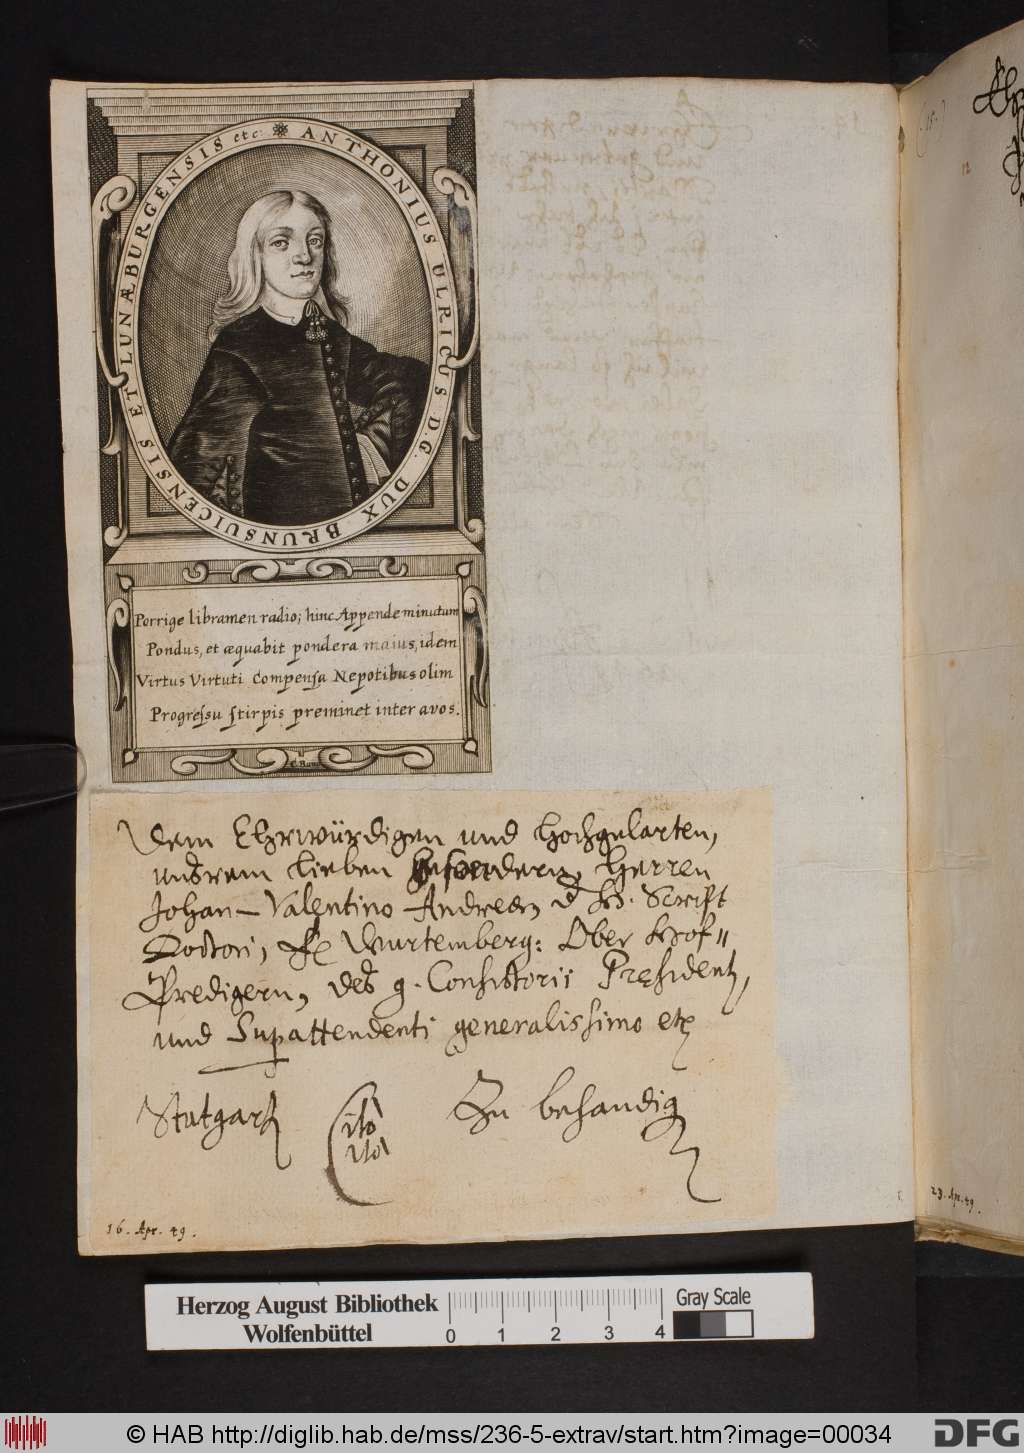 ANTHONIUS ULRICUS D.G. DUX BRUNSUICENSIS ET LUNÆBURGENSIS etc
Porrige libramen radio; hinc Appende minutum
Pondus, et æquabit pondera maius, idem
Virtus Virtuti Compensa Nepotibus olim
Progressu stirpis preminet inter avos.
Dem Ehrwürdigen und Hochgelarten,
unsrem lieben besondern, Herren
Johan-Valentino Andreæ, d H. Schrift
Doctori, Wurtemberg: Ober Hof=
Predigern, des g. Consistorii Præsidenten,
und Supattendenti generalissimo etc
Stutgart
Cito
ito
Zu behandig
16. Apr. 49.
15.
12
23. Apr. 49.
Herzog August Bibliothek
Wolfenbüttel
0 1 2 3 4
Gray Scale
© HAB http://diglib.hab.de/mss/236-5-extrav/start.htm?image=00034
DFG